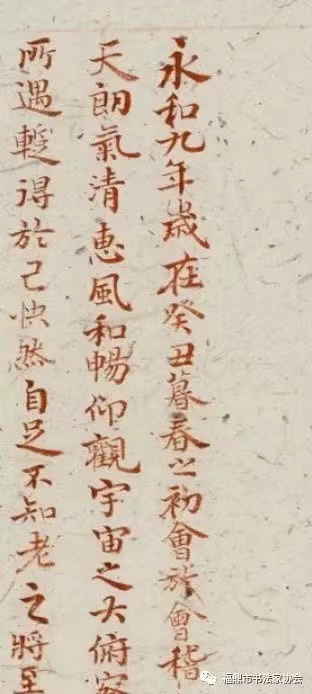 永和九年歲在癸丑暮春之初會於會稽
天朗氣清惠風和暢仰觀宇宙之大俯察
所遇輙得於己快然自足不知老之將至
福鼎市书法家协会